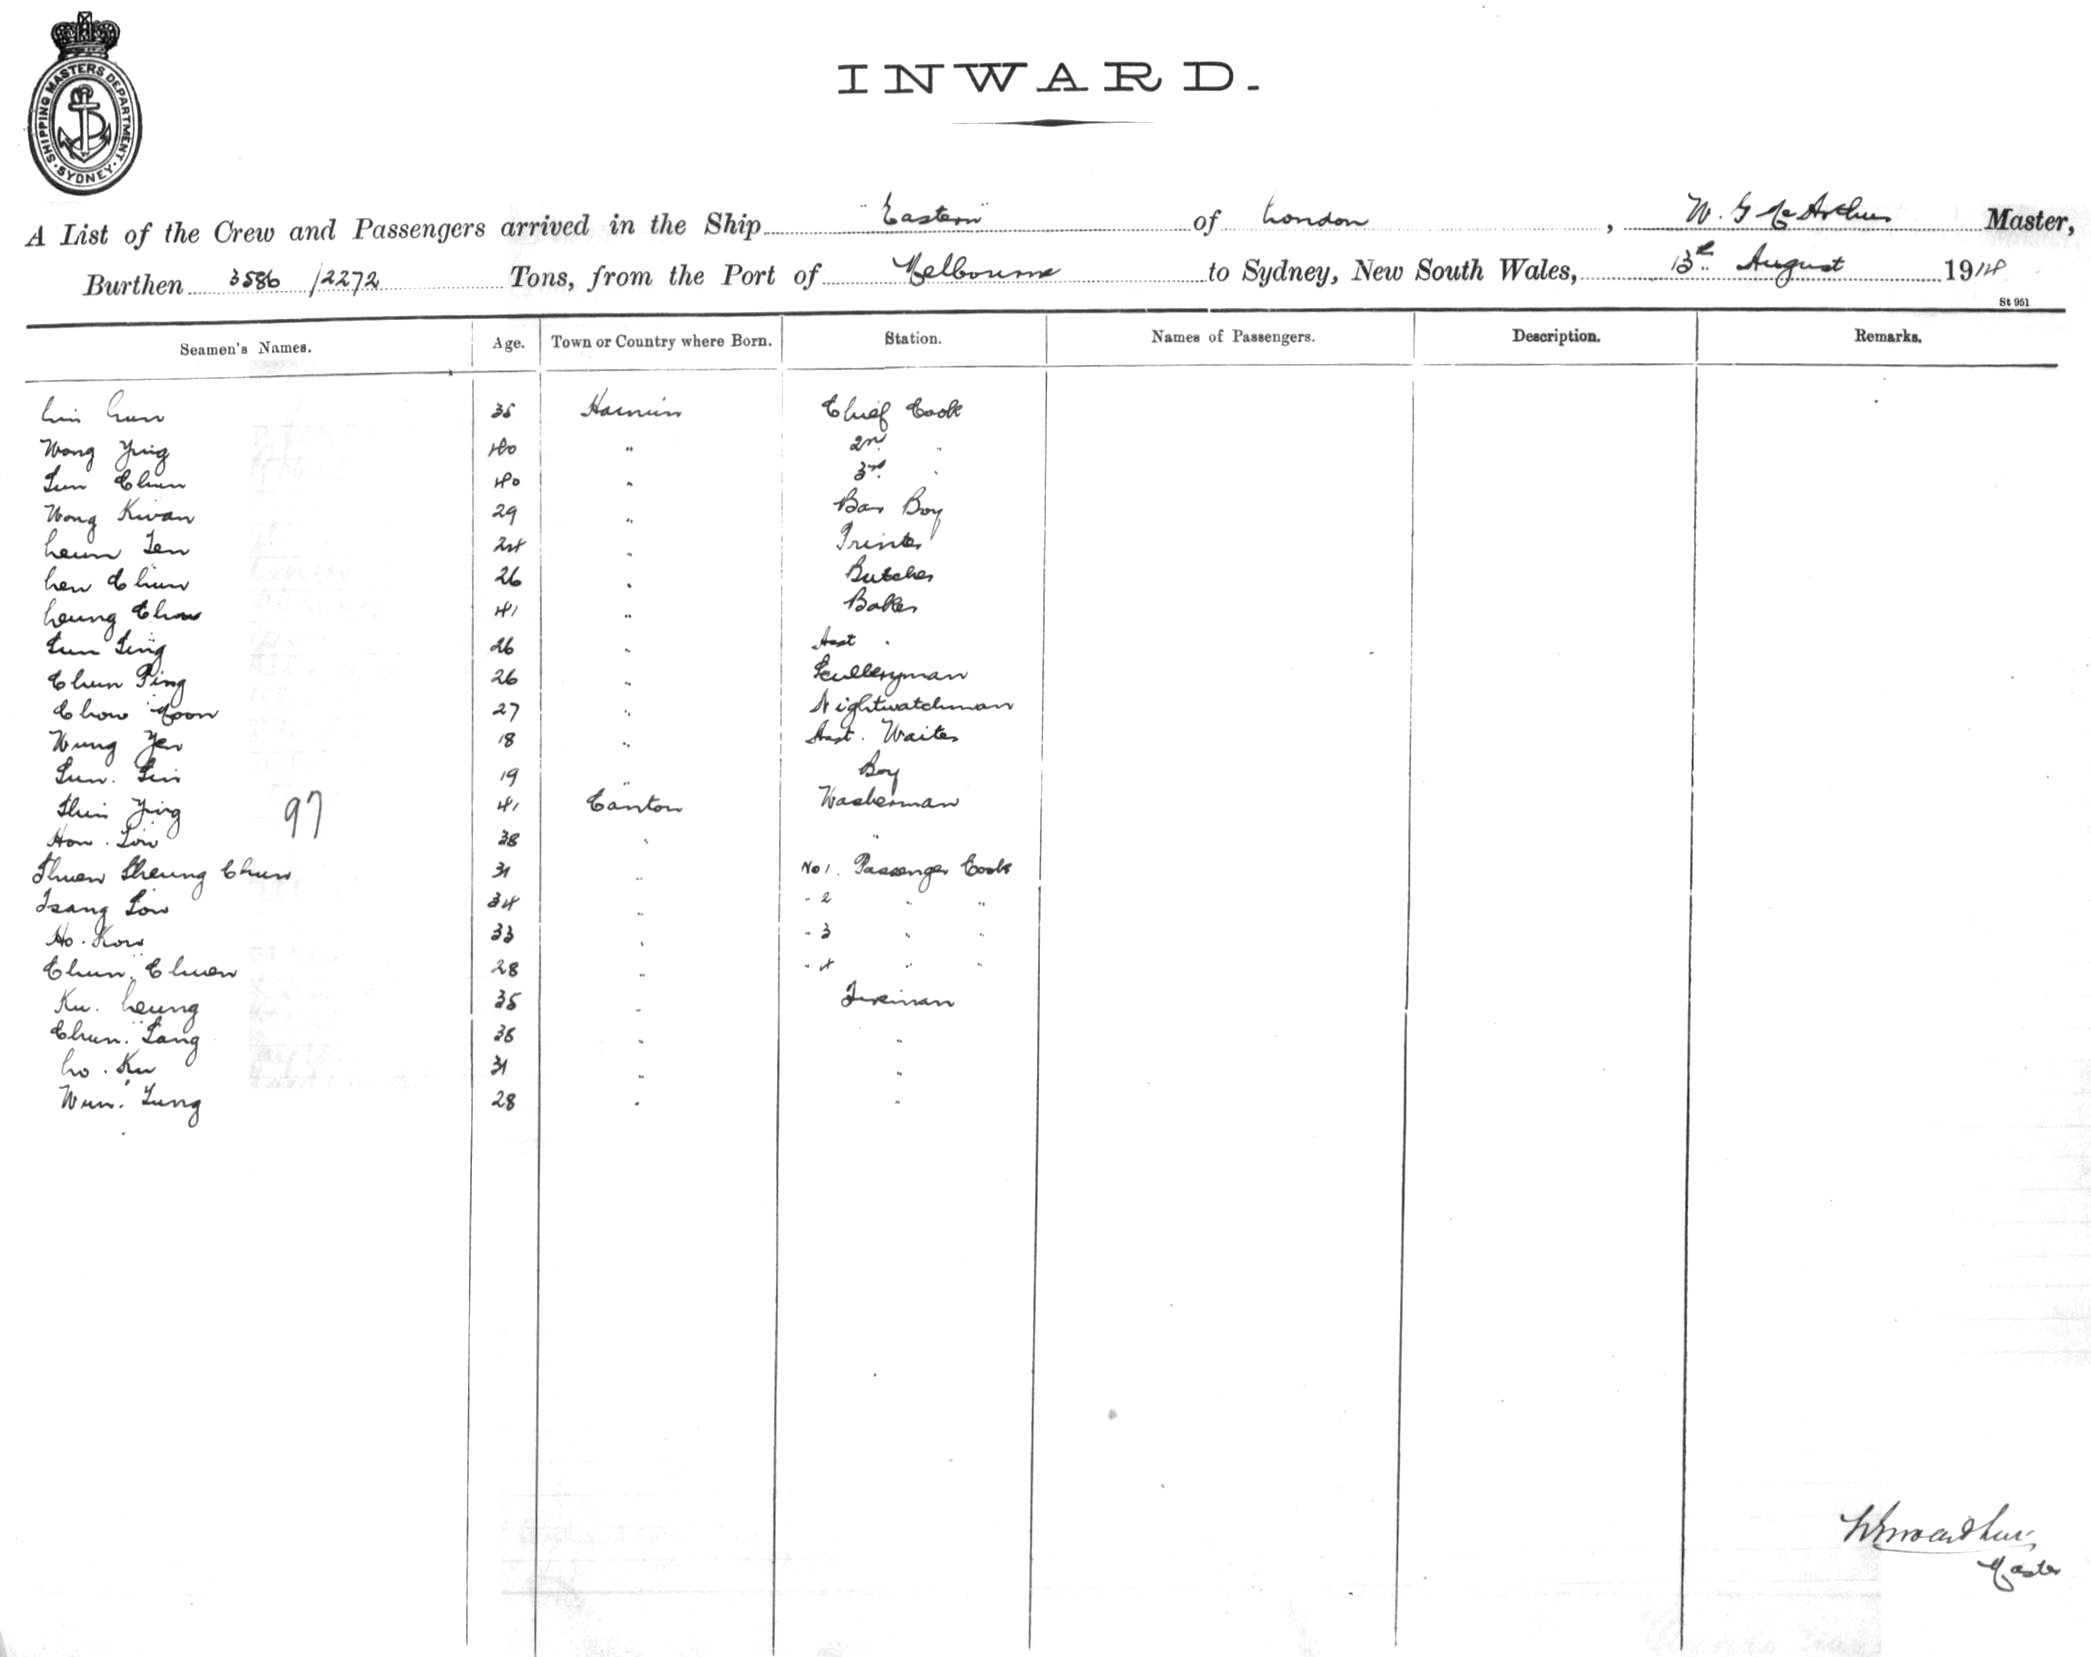 SHIPPING MASTERS DEPARTMENT · SYDNEY ·
INWARD.
A List of the Crew and Passengers arrived in the Ship "Eastern" of London, W. G McArthur Master,
Burthen 3586/2272 Tons, from the Port of Melbourne to Sydney, New South Wales, 13th August 1914
St 951
Seamen's Names. Age. Town or Country where Born. Station. Names of Passengers. Description. Remarks.
35 Chief Cook
Wong Ying 40 " 2nd "
Sun Chun 40 " 3rd "
Wong Kwan 29 " Bar Boy
Leun 24 " Printer
Len Chun 26 " Butcher
Leung Chow 41 " Baker
Sun Sing 26 " Asst "
Chun Ping 26 " Sculleryman
Chow Koon 27 " Nightwatchman
Wung Yew 18 " Asst. Waiter
Sun. Sin 19 " Boy
Shin Ying 97 41 Canton Washerman
Hon. Sow 38 " "
Shuen Sheung Chun 31 " No 1. Passenger Cook
Tsang Sow 34 " " 2 " "
Ho. Kow 33 " " 3 " "
Chun. Chuen 28 " " 4 " "
Ku. Leung 35 " Fireman
Chun. Sang 36 " "
Lo. Ku 31 " "
Wun. Tung 28 " "
Master